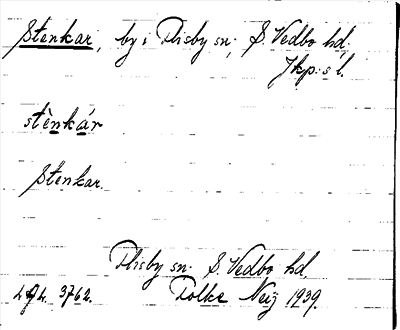 Stenkar, by i Flisby sn; S. Vedbo hd;
Jkp:s l.
stènkár
Stenkar.
Flisby sn. S. Vedbo hd.
3762. Folke Neij 1939.